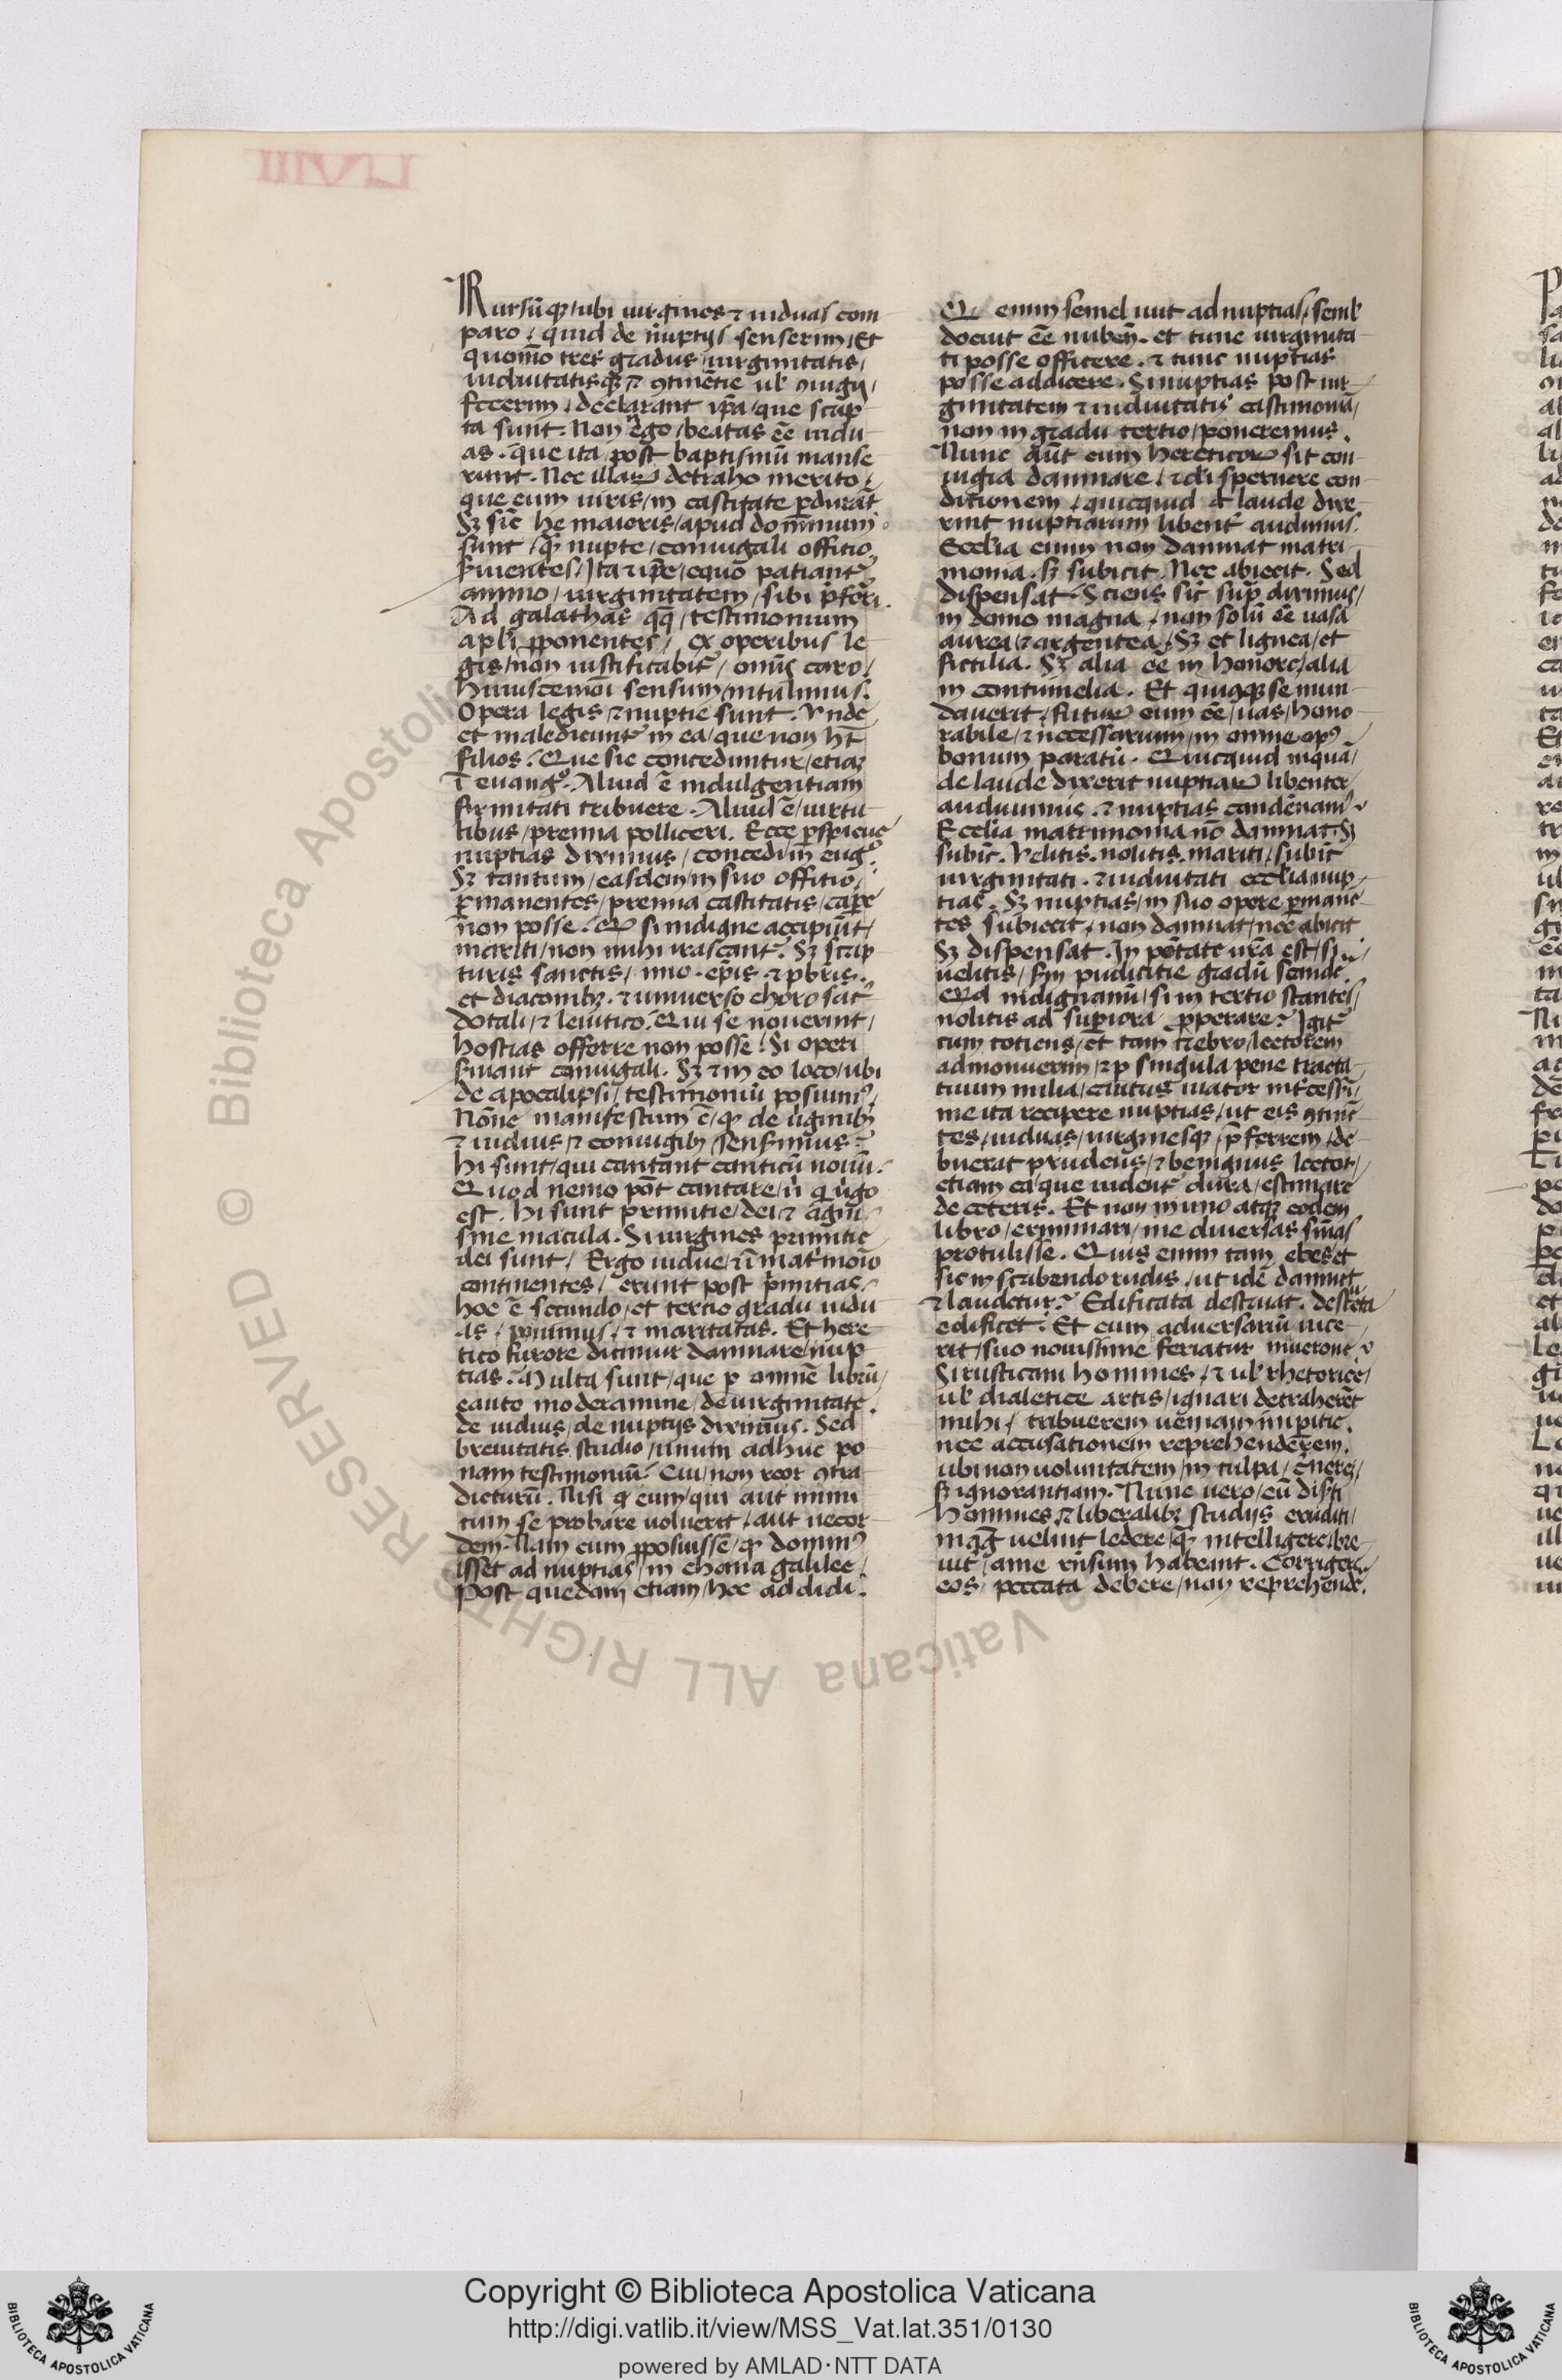 Rursūq; ubi uirgines ⁊ uiduas com
paro / quid de nuptijs senserim / Et
quom̄o tres gradus / uirginitatis /
uiduitatisq; ⁊ ꝯtinētie uł ꝯiugij /
fecerim / declarant ip̄a / que scrip
ta sunt. Non ego / beatas ēe uidu
as. que ita post baptismū manse
runt. Nec illaꝝ detraho merito /
que cum uiris / in castitate ꝑdurāt
Sꝫ sic̄ he maioris / apud dominum
sunt / q̄ nupte / coniugali offitio
ẜuientes / Ita ⁊ ip̄e / equo patiant᷑
animo / uirginitatem / sibi p̄ferri.
Ad galathas qq̨ / testimonium
apl̄i ꝓponentes / ex operibus le
gis / non iustificabit᷑ / omīs caro /
huiuscem̄oi sensum / intulimus.
Opera legis ⁊ nuptie sunt. Vnde
et maledicunt᷑ in ea / que non hn̄t
filios. Que sic conceduntur / etiaꝫ
ī euangᵒ. Aliud ē indulgentiam
firmitati tribuere. Aliud ē / uirtu
tibus / premia polliceri. Ecce ꝑspicue
nuptias diximus / concedi in eugᵒ.
Sꝫ tantum / easdem in suo offitio
ꝑmanentes / premia castitatis / capere
non posse. Qđ si indigne accipiūt /
mariti / non mihi irascant᷑. Sꝫ scrip
turis sanctis / imo. ep̄is ⁊ pb̄ris.
et diaconibꝫ. ⁊ uniuerso choro sac̄
dotali / ⁊ leuitico. Qui se nouerint /
hostias offerre non posse. Si operi
ẜuiant coniugali. Sꝫ ⁊ in eo loco / ubi
de apocalipsi / testimoniū posuimꝰ /
Nōne manifestum ē / qđ de ūginibꝫ
⁊ uiduis / ⁊ coniugibꝫ senẜimus?
Hi sunt / qui cantant canticū nouū.
Quod nemo pōt cantare / n̄ q ūgo
est. Hi sunt primitie / dei ⁊ agni
sine macula. Si uirgines primitie
dei sunt / Ergo uidue / ⁊ ī mat̄moīo
continentes / erunt post p̄mitias.
hoc ē secundo / et tertio gradu uidu
as / ponimus / ⁊ maritatas. Et here
tico furore dicimur damnare / nup
tias. Multa sunt / que ꝑ omnē librū /
cauto moderamine / de uirginitate
de uiduis / de nuptijs diximus. Sed
breuitatis studio / unum adhuc po
nam testimoniū. Cui / non reor ꝯtra
dicturū. Nisi q eum / qui aut mimi
cum se probare uoluerit / aut uecor
dem. Nam cum ꝓposuissē / qđ dominꝰ
isset ad nuptias / in chana galilee /
Post quedam etiam / hec addidi.
Qđ enim semel iuit ad nuptias / semł
docuit ēe nubēꝫ. et tunc uirginita
ti posse officere. ⁊ tunc nuptias
posse addicere. Si nuptias post uir
ginitatem ⁊ uiduitatis castimoniā /
non in gradu tertio / poneremus.
Nunc aūt cum hereticoꝝ sit con
iugia damnare / ⁊ di spernere con
ditionem / quicquid de laude dixe
rint nuptiarum libent᷑ audimus.
Eccl̄ia enim non damnat matri
monia. sꝫ subicit. Nec abiecit. Sed
dispensat. Sciens sic̄ sup̄ diximus /
in domo magna / non solū ēe uasa
aurea / ⁊ argentea. Sꝫ et lignea / et
fictilia. Sꝫ alia ēe in honore / alia
in contumelia. Et quicq; se mun
dauerit / futuꝝ eum ēe / uas / hono
rabile / ⁊ necessarium / in omne opꝰ
bonum paratū. Quicquid inquā /
de laude dixerit nuptiaꝝ libenter
audiuimus. ⁊ nuptias condēnamꝰ
Eccl̄ia matrimonia nō damnat. Sꝫ
subic̄. Velitis. nolitis. mariti / subic̄
uirginitati. ⁊ uiduitati eccl̄ia nup
tias. Sꝫ nuptias / in suo opere ꝑmane
tes subiecit / non damnat / nec abicit
Sꝫ dispensat. In pōtate ur̄a est / si
uelitis / ẜm pudicitie gradū scande
Qđ indignanū / si in tertio stantes /
nolitis ad supiora ꝓperare? Igit᷑
cum totiens / et tam crebro / lectorem
admonuerim / ⁊ ꝑ singula pene tracta
tuum milia / cautus uiator int̄cessi
me ita recipere nuptias / ut eis ꝯtinē
tes / uiduas / uirginesq; p̄ferrem / de
buerat prudens / ⁊ benignus lector /
etiam ea que uident᷑ dura / estimare
de ceteris. Et non in uno atq; eodem
libro / criminari / me diuersas sn̄ias
protulisse. Quis enim tam ebes / et
sic in scribendo rudis / ut idē damnet
⁊ laudetur? Edificata destruat. destructa
edificet. Et cum aduersariū uice
rit / suo nouissime feriatur mucrone
Si rusticani homines / ⁊ uł rhetorice /
uł dialetice artis / ignari detraherēt
mihi / tribuerem ueniam impitie.
nec accusationem reprehenderem.
ubi non uoluntatem / in culpa / cnerē /
sꝫ ignorantiam. Nunc uero / cū diserti
homines / ⁊ liberalibꝫ studijs eruditi /
mag̅ uelint ledere / q̄ intelligere / bre
uit᷑ / a me rn̄sum habeant. Corrigere
eos / peccata debere / non reprehende.
Copyright © Biblioteca Apostolica Vaticana
http://digi.vatlib.it/view/MSS_Vat.lat.351/0130
powered by AMLAD·NTT DATA